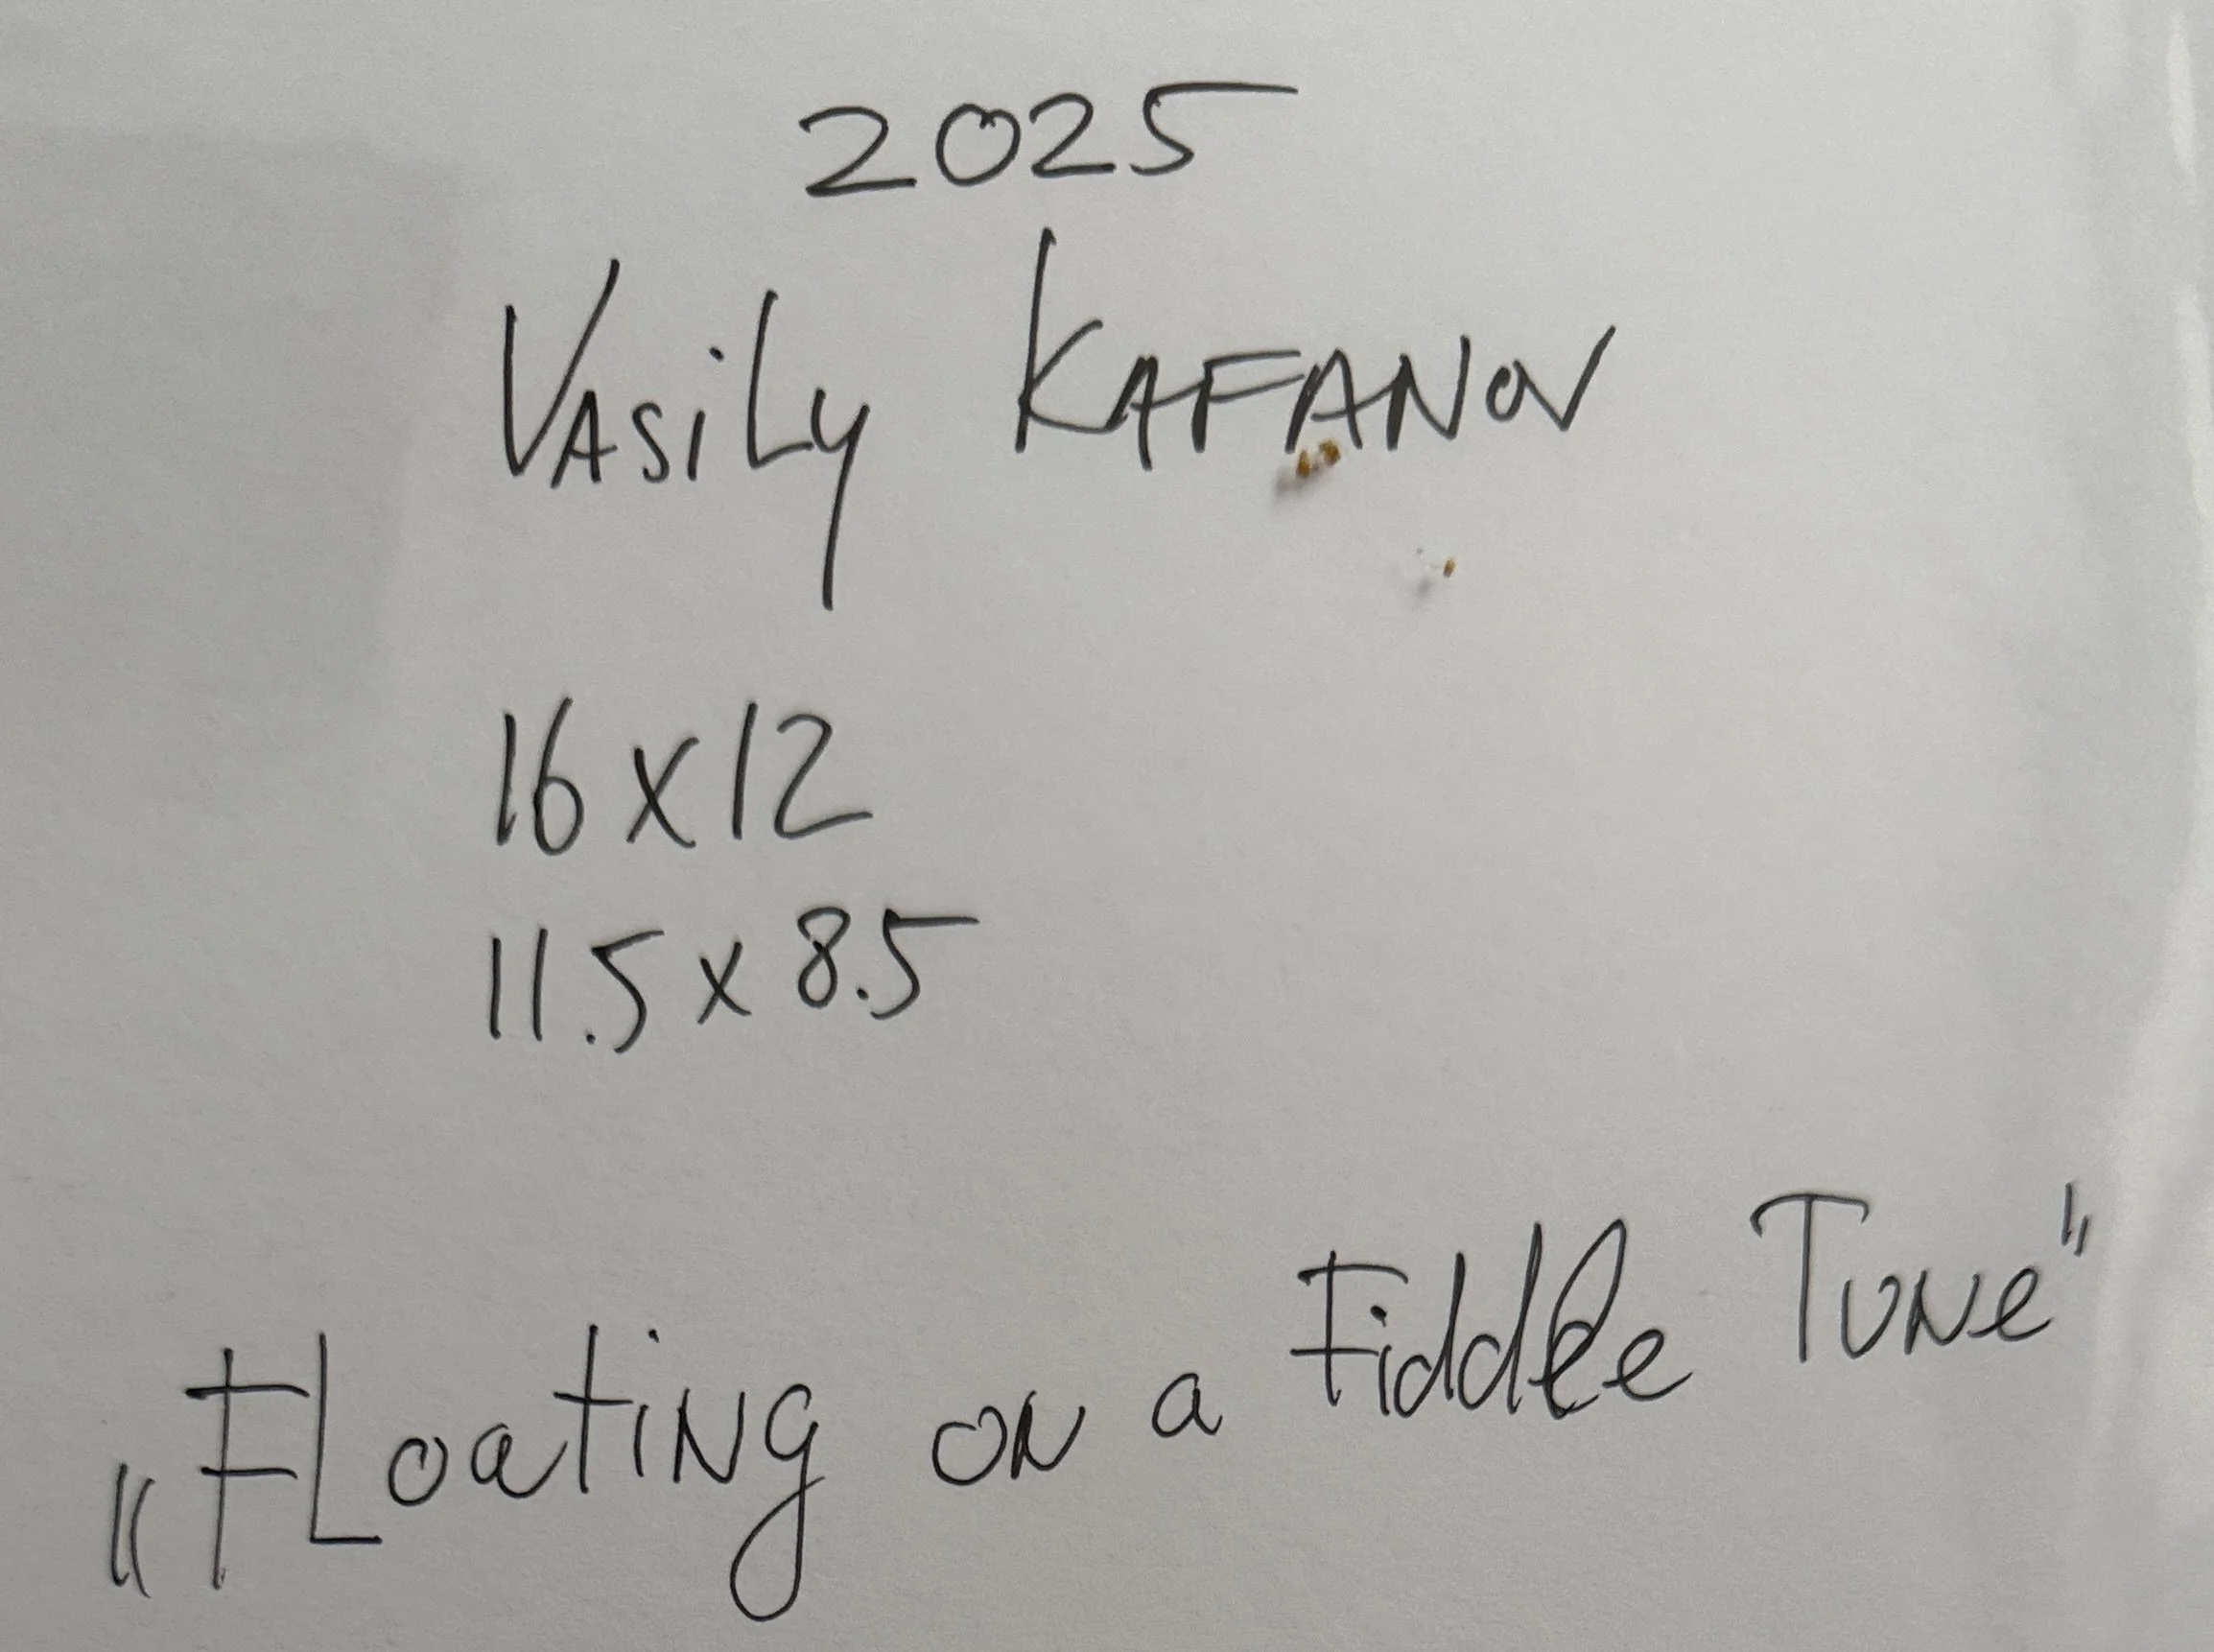 2025
Vasily KAFANOV
16 x 12
11.5 x 8.5
„Floating on a Fiddle Tune"